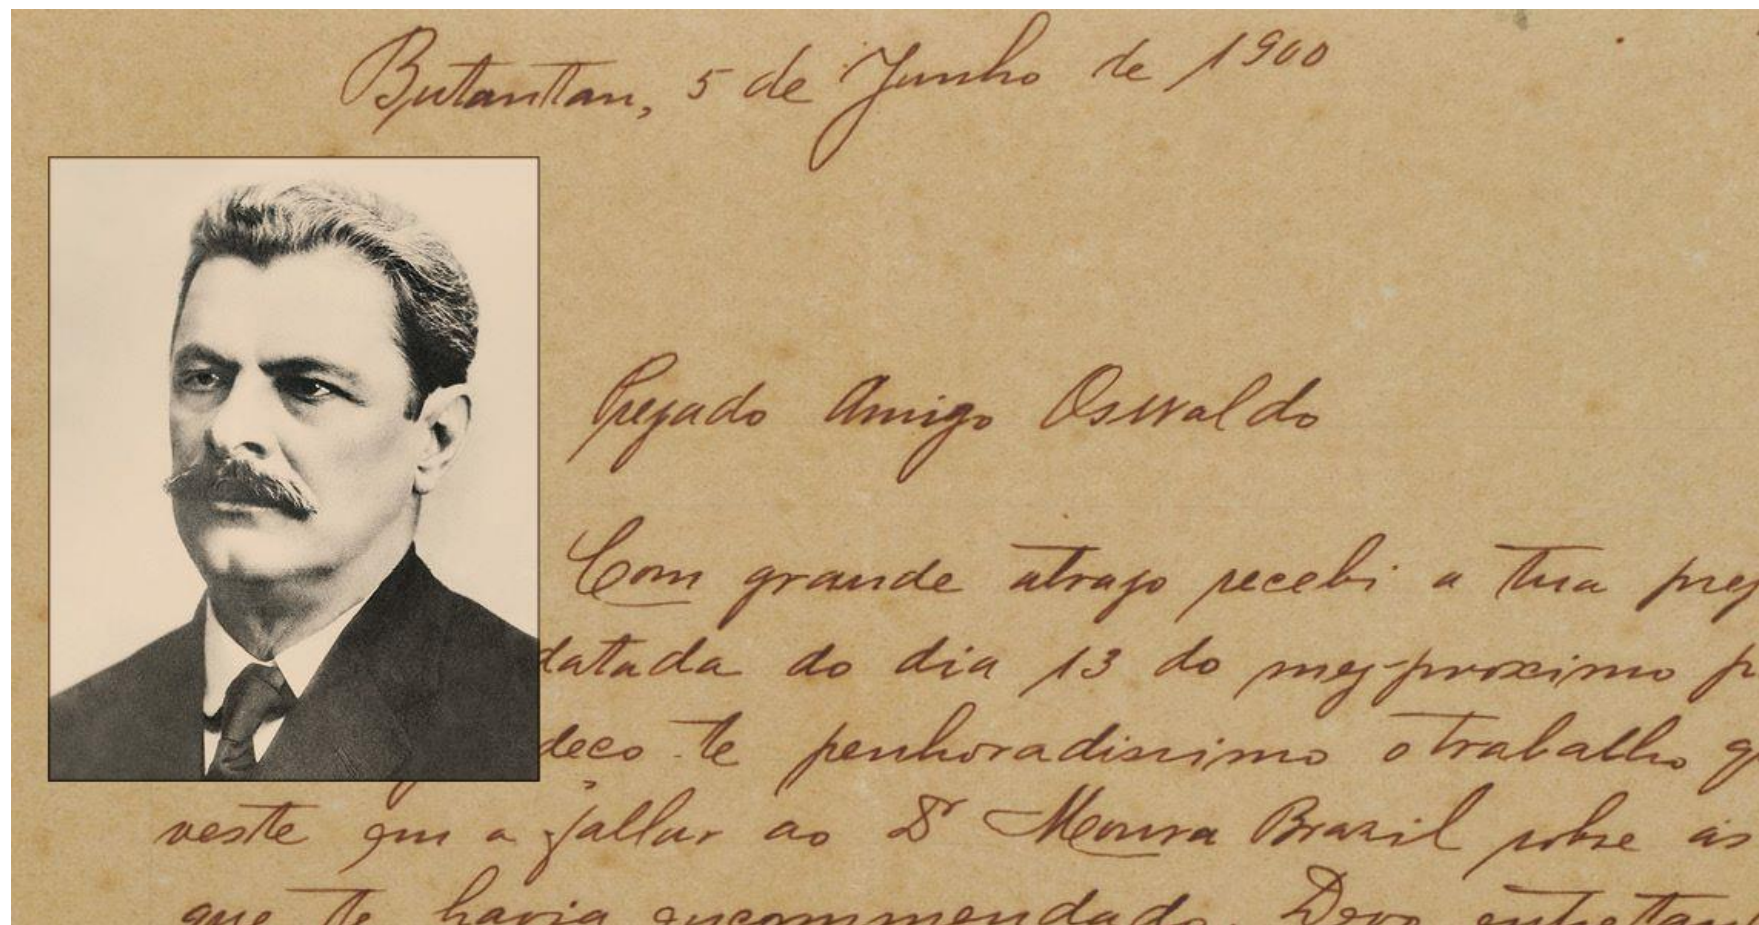 Butantan, 5 de Junho de 1900
Prezado Amigo Oswaldo
Com grande atrazo recebi a tua prez
datada do dia 13 do mez proximo p
deço-te penhoradissimo o trabalho q
veste em a fallar ao Dr Moura Brazil sobre as
que te havia encommendado. Devo entretan